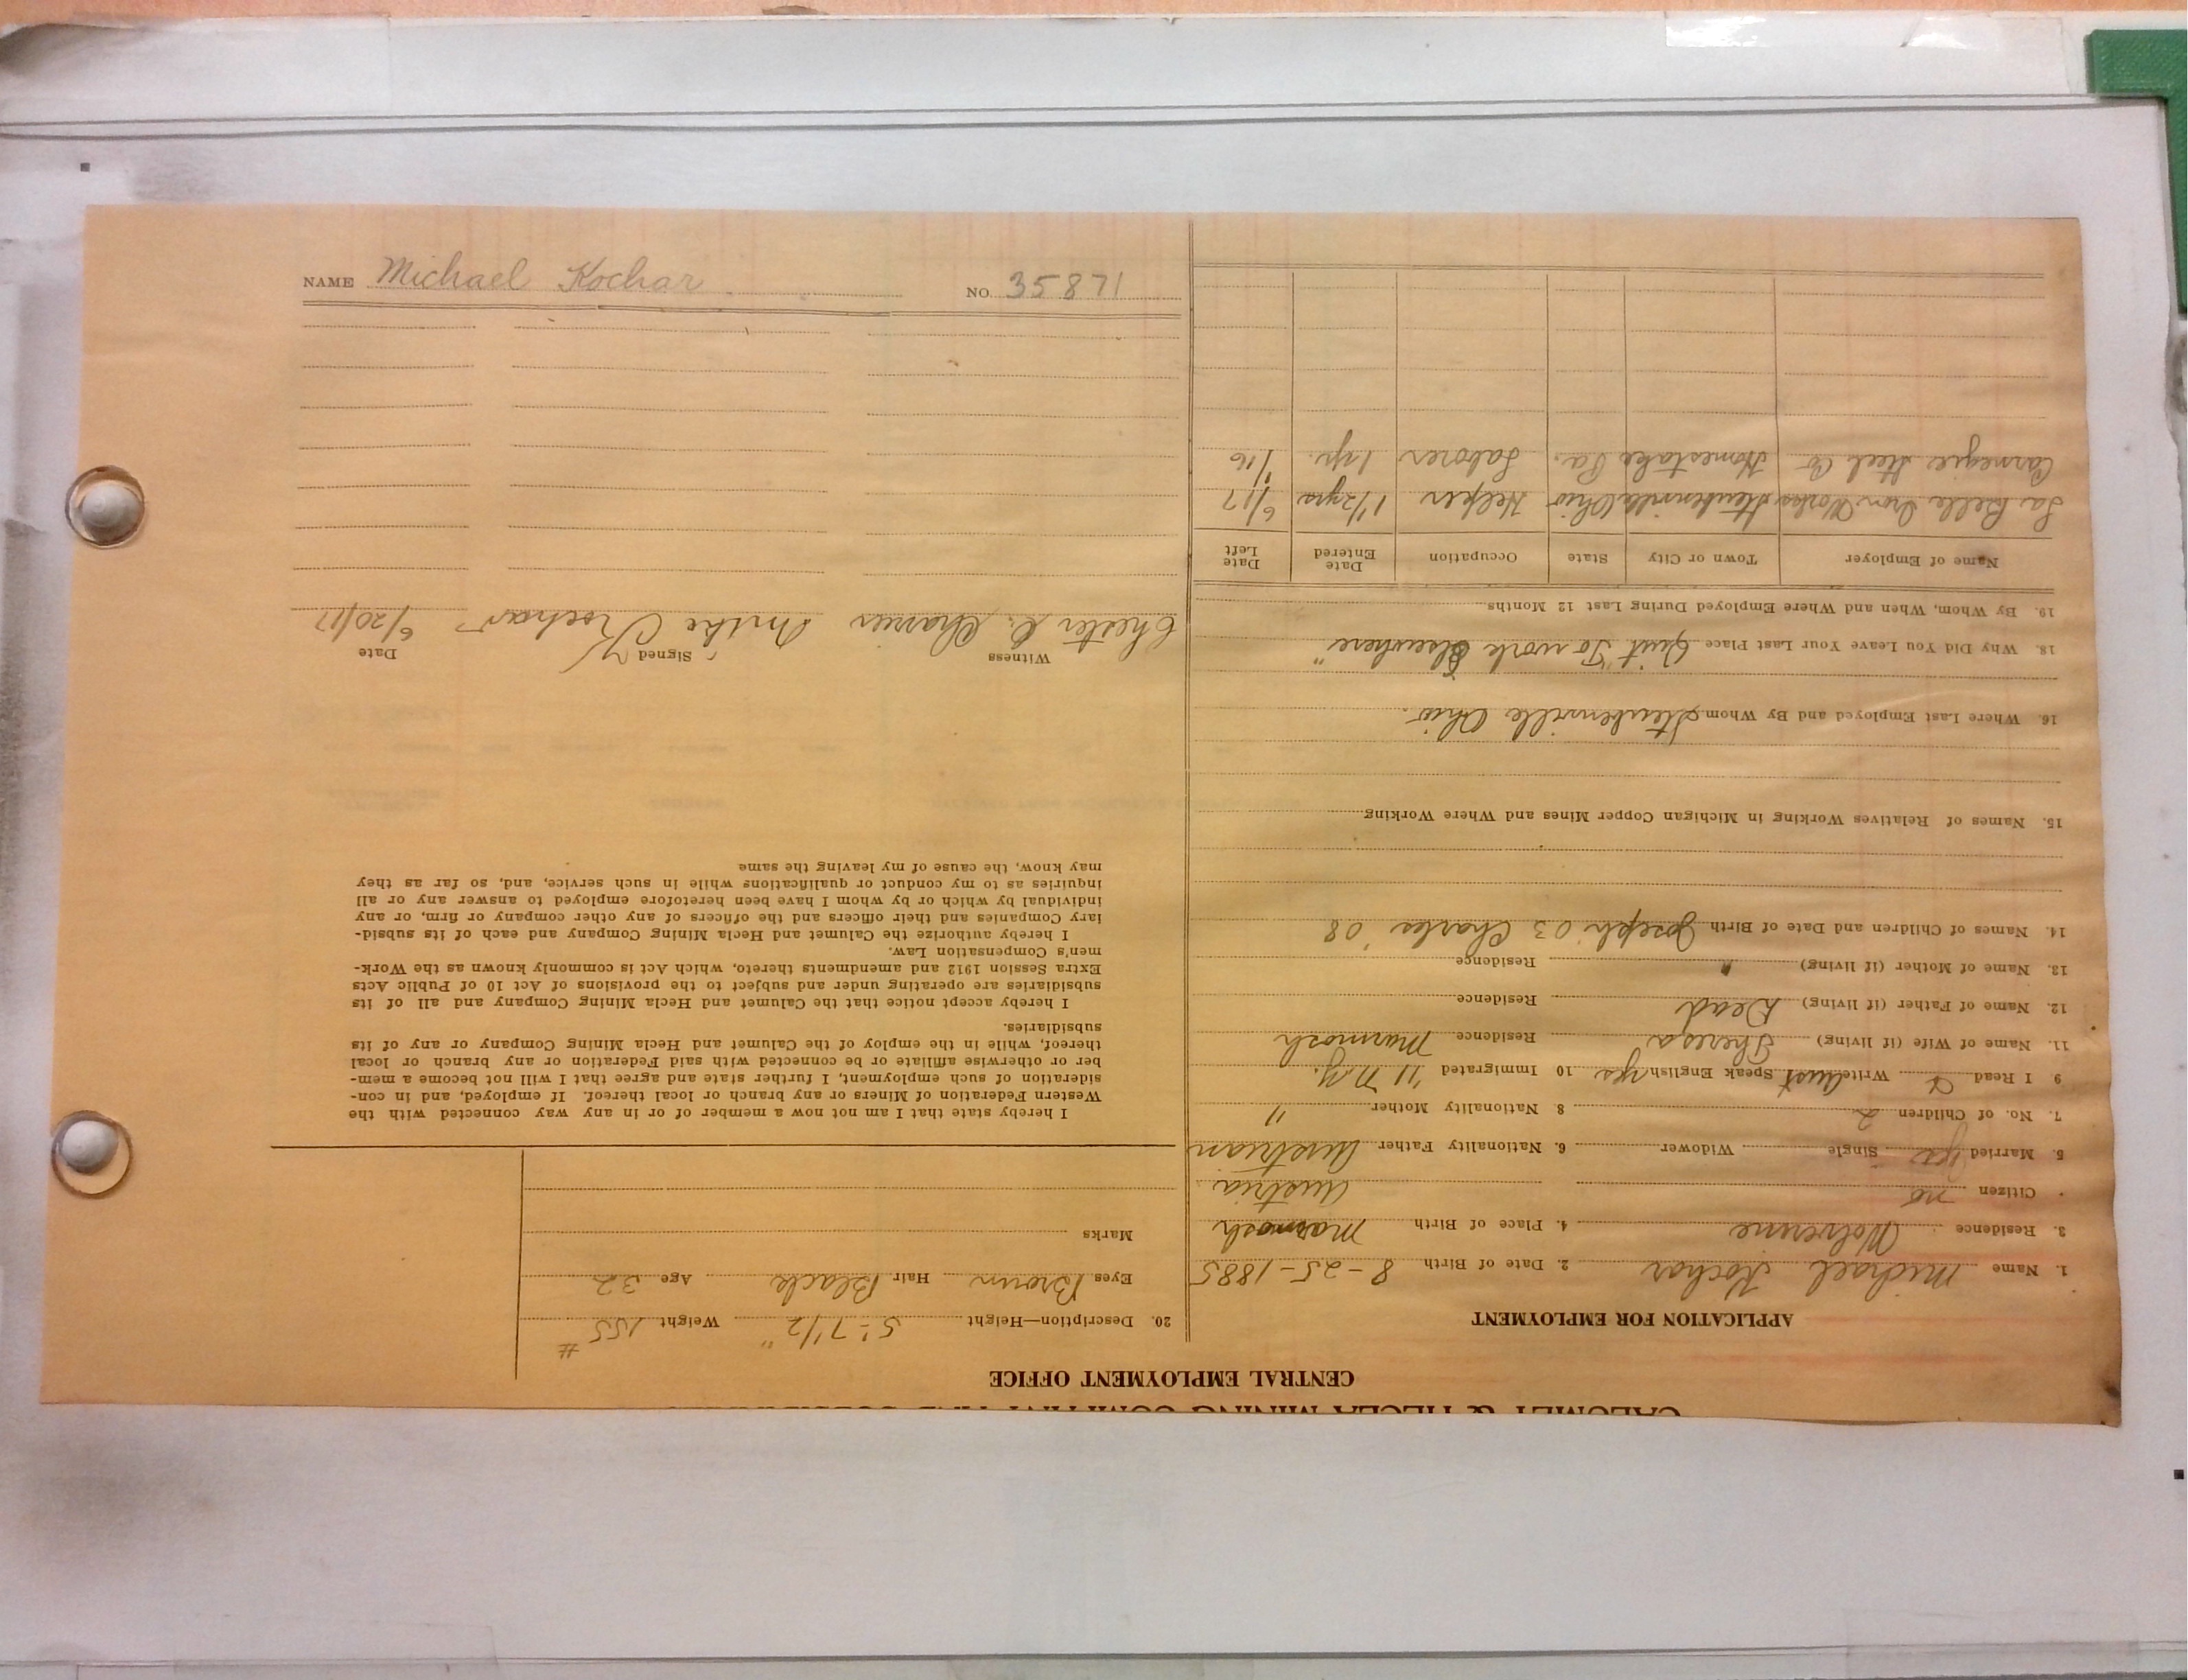 NAME Michael Kochar NO. 35871
CALUMET & HECLA MINING COMPANY AND SUBSIDIARIES
CENTRAL EMPLOYMENT OFFICE
APPLICATION FOR EMPLOYMENT
1. Name Michael Kochar 2. Date of Birth 8-25-1885
3. Residence Wolverine 4. Place of Birth Marmosh
Citizen no Austria
5. Married yes Single Widower 6. Nationality Father Austrian
7. No. of Children 2 8 Nationality Mother "
9 I Read & Write Aust Speak English yes 10 Immigrated '11 N.Y.
11. Name of Wife (if living) Theresa Residence Marmosh
12. Name of Father (if living) Dead Residence
13. Name of Mother (if living) " Residence
14. Names of Children and Date of Birth Joseph '03 Charles '08
15. Names of Relatives Working in Michigan Copper Mines and Where Working
16. Where Last Employed and By Whom Steubenville Ohio.
18. Why Did You Leave Your Last Place Quit "To work Elsewhere"
19. By Whom, When and Where Employed During Last 12 Months
Name of Employer Town or City State Occupation Date Entered Date Left
La Belle Iron Works Steubenville Ohio Helper 1 1/2 yrs 6/17
Carnegie Steel Co Homestake Pa. Laborer 1 yr. 1/16
20. Description—Height 5'-7 1/2" Weight 155 #
Eyes Brown Hair Black Age 32
Marks
I hereby state that I am not now a member of or in any way connected with the
Western Federation of Miners or any branch or local thereof. If employed, and in con-
sideration of such employment, I further state and agree that I will not become a mem-
ber or otherwise affiliate or be connected with said Federation or any branch or local
thereof, while in the employ of the Calumet and Hecla Mining Company or any of its
subsidiaries.
I hereby accept notice that the Calumet and Hecla Mining Company and all of its
subsidiaries are operating under and subject to the provisions of Act 10 of Public Acts
Extra Session 1912 and amendments thereto, which Act is commonly known as the Work-
men's Compensation Law.
I hereby authorize the Calumet and Hecla Mining Company and each of its subsid-
iary Companies and their officers and the officers of any other company or firm, or any
individual by which or by whom I have been heretofore employed to answer any or all
inquiries as to my conduct or qualifications while in such service, and, so far as they
may know, the cause of my leaving the same
Witness Signed Date
Chester C. Mike Kochar 6/20/17